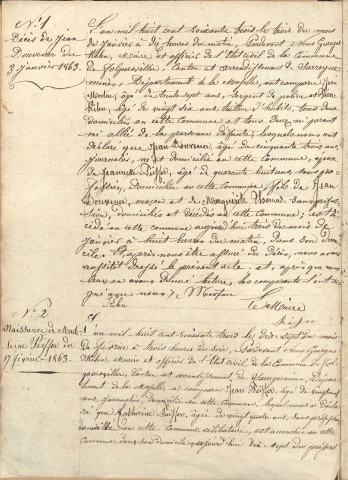 N° 1
Décès de Jean
Douvreur du
3 Janvier 1863.
L'an mil huit cent soixante trois le trois du mois
de Janvier à dix heures du matin, Pardevant Nous Georges
maire et officier de l'Etat civil de la Commune
de Folpersviller, Canton et arrondissement de Sarregue-
mines, Département de la Moselle, ont comparu Jean
âgé de trente sept ans, Sergent de police et
âgé de vingt six ans, tous deux
domiciliés en cette commune et tous deux ni parent
ni allié de la personne défunte, lesquels nous ont
déclaré que Jean Douvreur, âgé de cinquante trois ans,
journalier, né et domicilié en cette commune, époux
de Jeannette Peiffer, âgée de quarante huit ans, sans pro-
fession, domiciliée en cette commune, fils de Jean
Douvreur, maçon et de Marguerite sans profes-
sion, domiciliés et décédés en cette commune; est dé-
cédé en cette commune aujourd'hui trois du mois de
Janvier à huit heures du matin, dans son domi-
cile. Et après nous être assuré du décès, nous avons
aussitôt dressé le présent acte, et après que nous
leur en avons donné lecture, les comparants l'ont si-
gné avec nous.
Le Maire
N° 2
Naissance de
Peiffer du
17 février 1863.
L'an mil huit cent soixante trois le dix sept du mois
de février à trois heures du soir, Pardevant nous Georges
maire et officier de l'Etat civil de la Commune de Fol-
persviller, Canton et arrondissement de Sarreguemines, Départe-
ment de la Moselle, a comparu Jean Peiffer, âgé de
ans, journalier, domicilié en cette commune, lequel nous a décla-
ré que Katherine Peiffer, âgée de vingt quatre ans, sans profession
domiciliée en cette commune célibataire, est accouchée en cette
commune dans son domicile aujourd'hui dix sept du présent